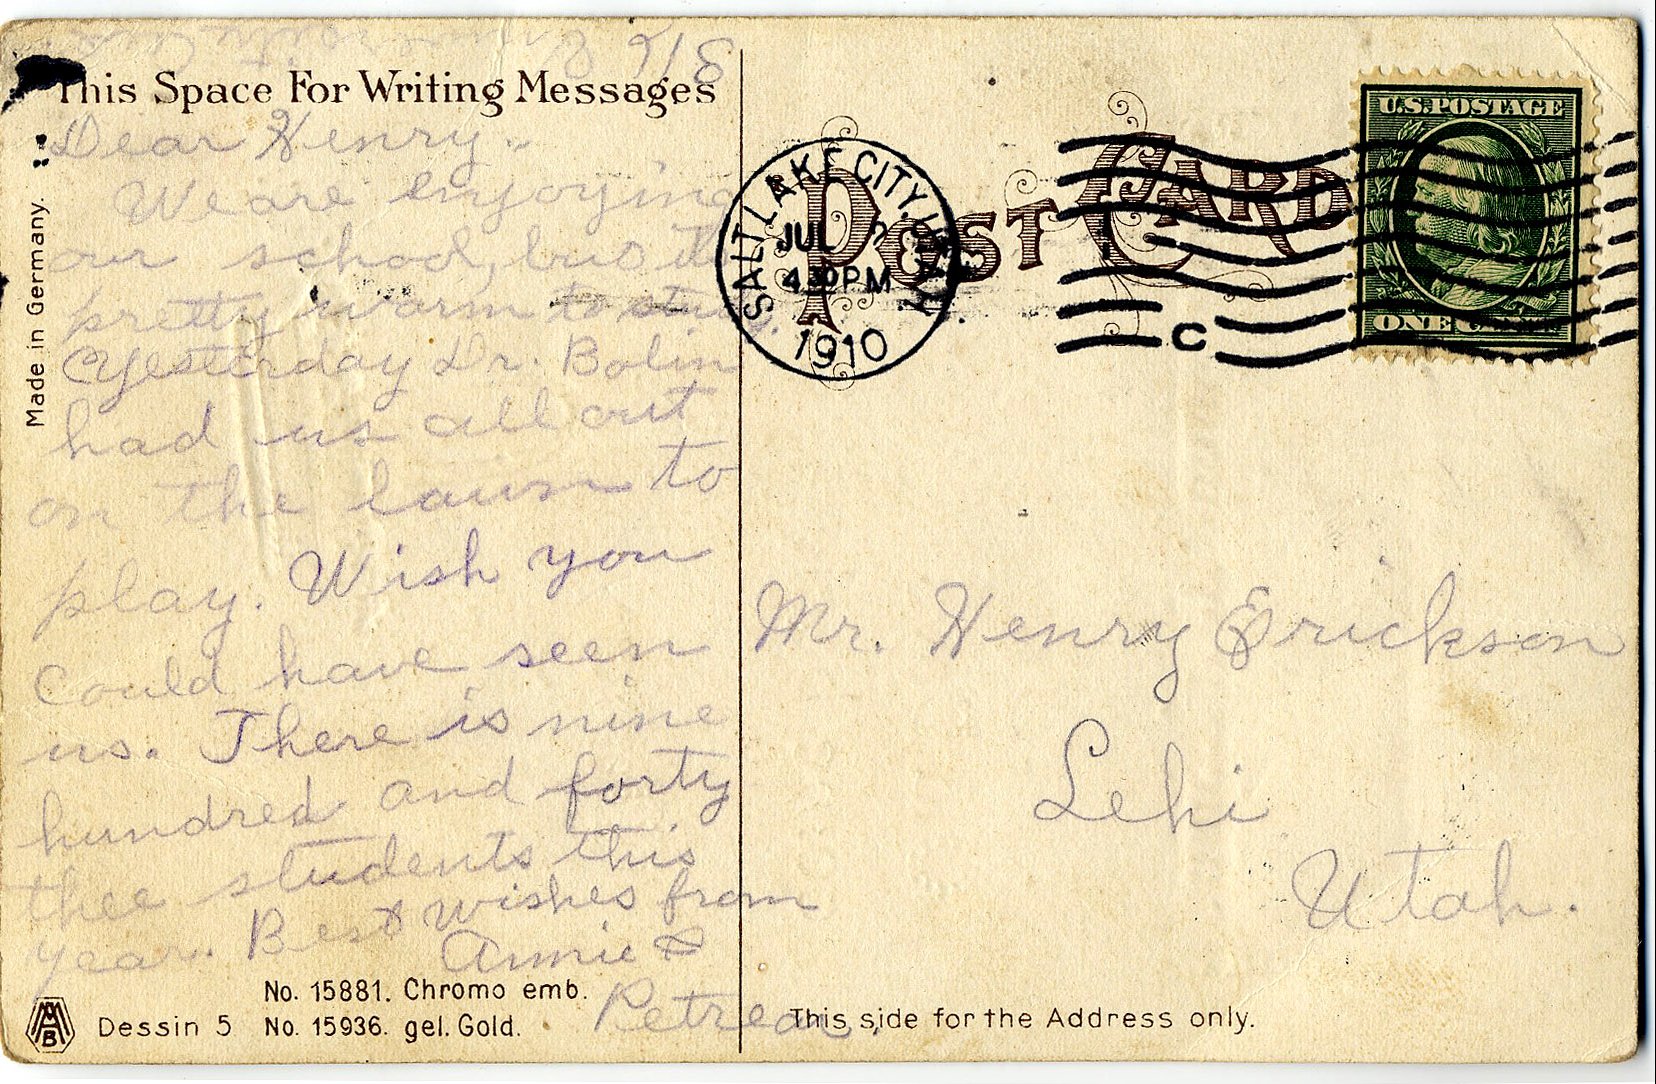 This Space For Writing Messages
Dear Henry.
We are enjoying
our school, but
pretty warm to
Yesterday Dr. Bolin
had us all out
on the lawn to
play. Wish you
Could have seen
us. There is nine
hundred and forty
thee students this
year. Best wishes from
Annie
Petrean.
Made in Germany.
MMB
No. 15881. Chromo emb.
Dessin 5 No. 15936. gel. Gold.
POST CARD
SALT LAKE CITY, UTAH.
JUL 2
4 30 PM
1910
C
U.S. POSTAGE
ONE CENT
Mr. Henry Erickson
Lehi
Utah.
This side for the Address only.